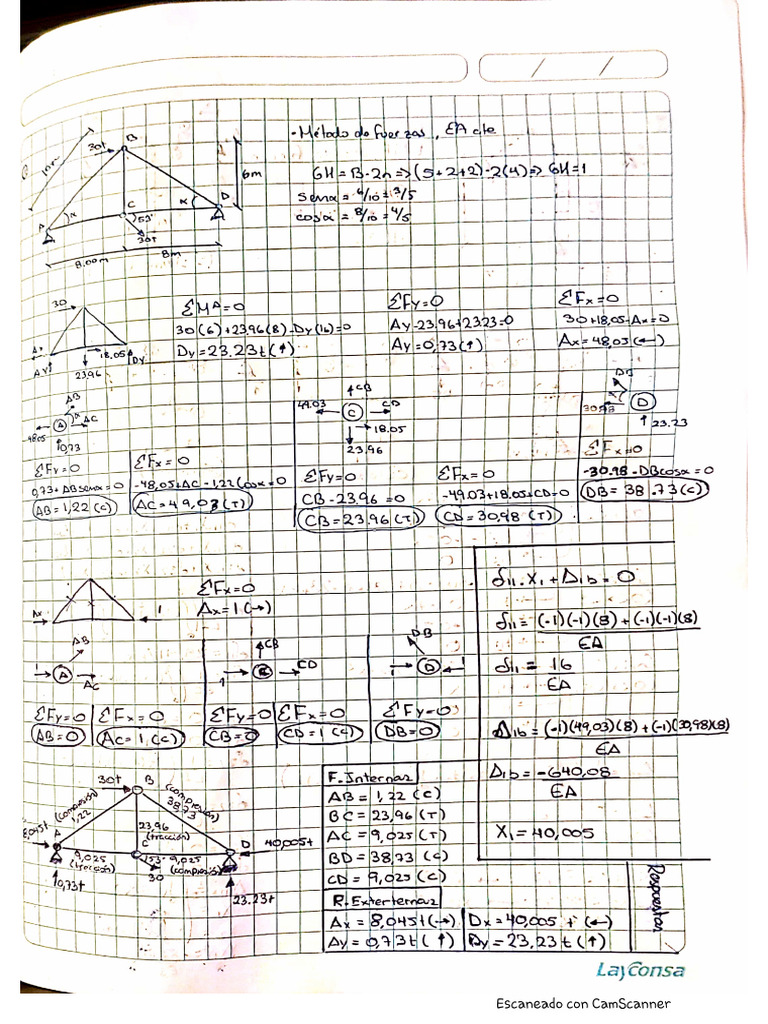 - Método de fuerzas, EA cte
GH = B - 2n => (5 + 2 + 2) - 2(4) => GH = 1
senα = 6/10 = 3/5
cosα = 8/10 = 4/5
30t
B
6m
10m
C
D
α
53°
A
α
30t
8,00m
8m
30
Ax
Ay
18,05
Dy
23,96
ΣMA = 0
30(6) + 23,96(8) - Dy(16) = 0
Dy = 23,23t (↑)
ΣFy = 0
Ay - 23,96 + 23.23 = 0
Ay = 0,73 (↑)
ΣFx = 0
30 + 18,05 - Ax = 0
Ax = 48,05 (←)
AB
α
AC
48.05
A
0,73
ΣFy = 0
0,73 + AB senα = 0
AB = 1,22 (C)
ΣFx = 0
-48,05 + AC - 1,22 Cosα = 0
AC = 49,03 (T)
CB
49.03
C
CD
18.05
23.96
ΣFy = 0
CB - 23,96 = 0
CB = 23,96 (T)
ΣFx = 0
-49.03 + 18.05 + CD = 0
CD = 30,98 (T)
DB
30.98
D
23.23
ΣFx = 0
-30.98 - DB cosα = 0
DB = 38.73 (C)
Ax
1
ΣFx = 0
Ax = 1 (→)
AB
1
A
AC
ΣFy = 0
AB = 0
ΣFx = 0
AC = 1 (C)
CB
1
CD
ΣFy = 0
CB = 0
ΣFx = 0
CD = 1 (C)
DB
1
D
1
ΣFy = 0
DB = 0
δ11 . X1 + Δ1b = 0
δ11 = (-1)(-1)(8) + (-1)(-1)(8)
EA
δ11 = 16
EA
Δ1b = (-1)(49,03)(8) + (-1)(30,98)(8)
EA
Δ1b = -640,08
EA
X1 = 40,005
30t
B
(Compresión)
1,22
(compresión)
38,73
8,045t
A
23,96
(tracción)
C
D
40,005t
9,025
(tracción)
53°
9,025
(compresión)
0,73t
30
23.23t
F. Internas
AB = 1,22 (C)
BC = 23,96 (T)
AC = 9,025 (T)
BD = 38,73 (C)
CD = 9,025 (C)
R. Exterternas
Ax = 8,045t (→)
Dx = 40,005 t (←)
Ay = 0,73t (↑)
Dy = 23,23t (↑)
Respuestas
LayConsa
Escaneado con CamScanner